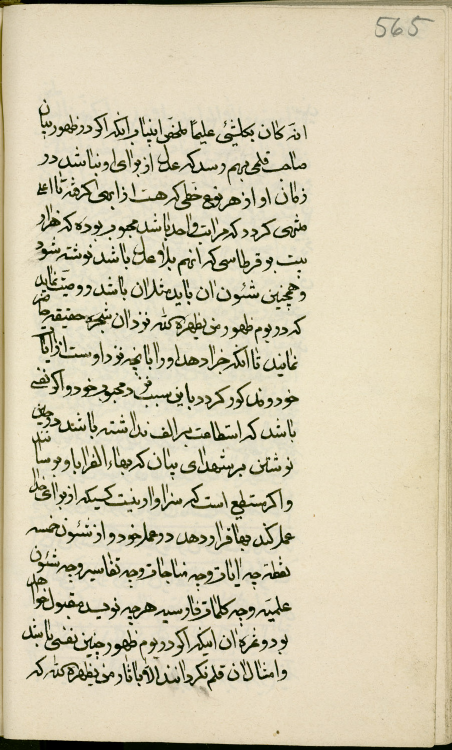 565
انه کان بکلشیئی علیما ملخص این باب انکه اکر در ظهور بیان
صاحب قلمی بهم رسد که عدل از برای او نباشد در
زمان او از هر نوع خطی که هست از ابهی کرفته تا اعلی
منتهی کردد که مراتب واحد باشد محبوب بوده که هزار
بیت بر قرطاسی که انهم بلا عدل باشد نوشته شود
و همچنین شئون ان باید بمثل ان باشد و وصیت نماید
که در یوم ظهور من یظهره الله نزد ان شجره حقیقة حاضر
نمایند تا انکه جزا دهد او را بانچه نزد اوست از ایات
خود و مذکور کردد باین سبب نزد محبوب خود و اکر نفسی
باشد که استطاعت بر الف نداشته باشد در حین
نوشتن بر شهدای بیان که بهاء الف را باو برسانند
و اکر مستطیع است که سزاوار نیست کسیکه از برای خدا
عمل کند بها قرار دهد در عمل خود و از شئون خمسه
نقطه چه ایات و چه مناجات و چه تفاسیر و چه شئون
علمیه و چه کلمات فارسیه هر چه نویسد مقبول خواهد
بود و ثمره ان اینکه اکر در یوم ظهور چنین نفسی باشد
و امثال ان قلم نکردانند الا باثار من یظهره الله که